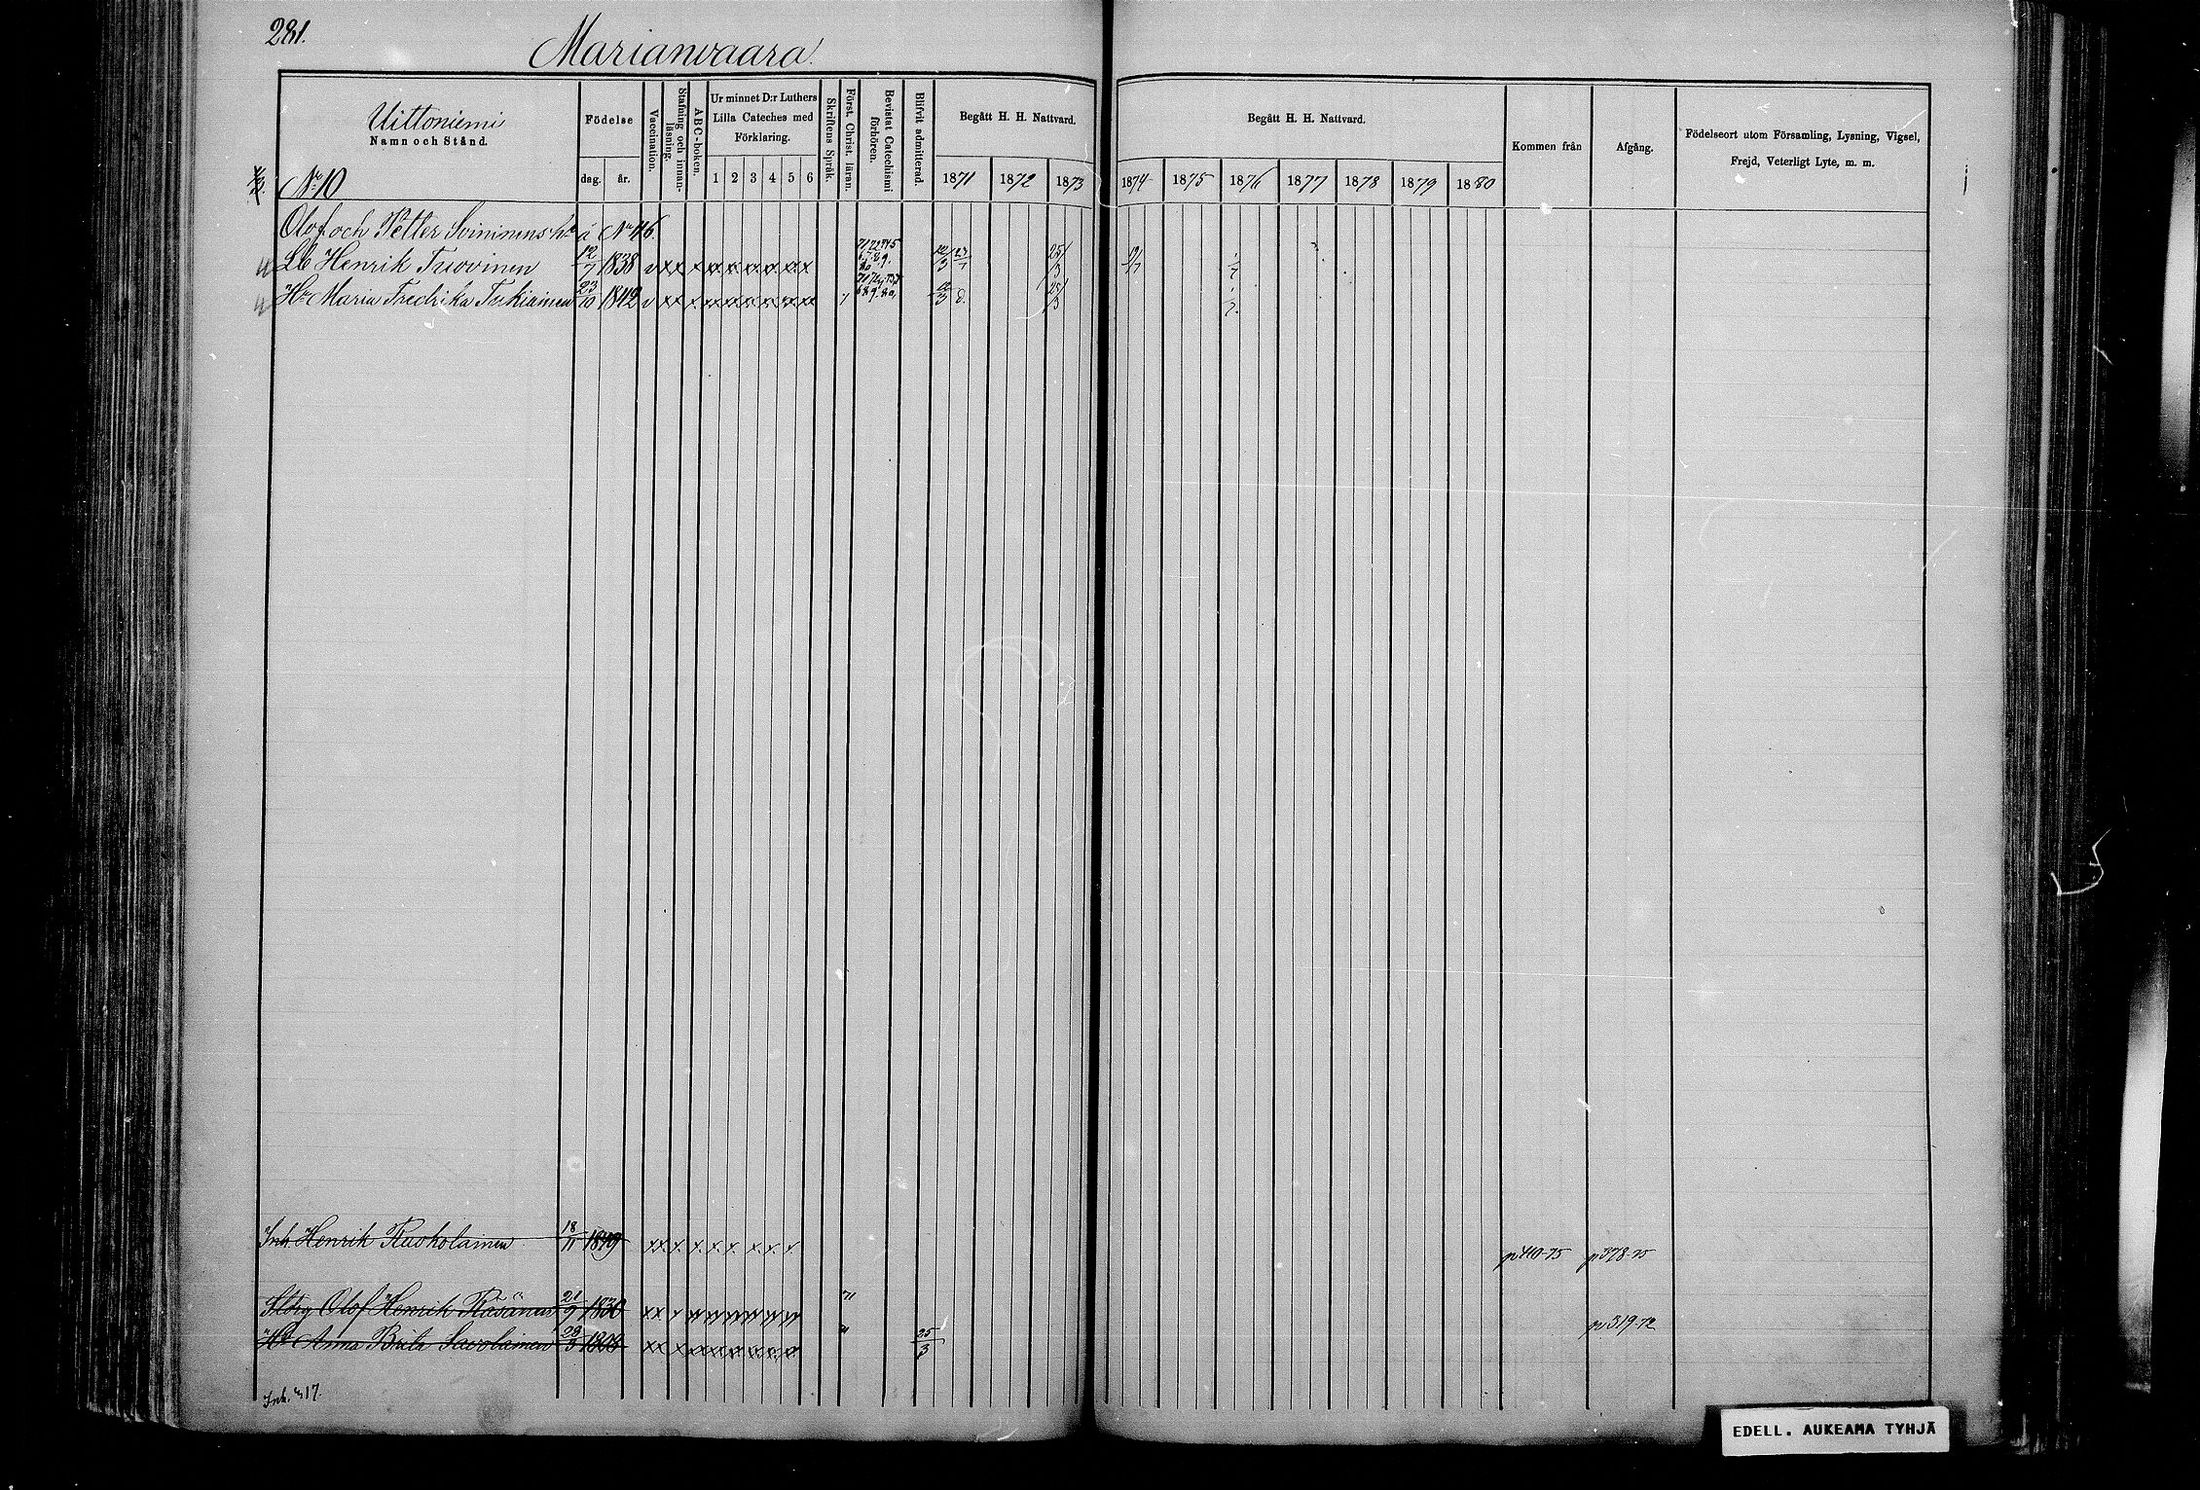 281.
Marianvaara.
Uittoniemi
Namn och Stånd.
Födelse
dag. år.
Vaccination.
Stafning och innanläsning.
ABC-boken.
Ur minnet D:r Luthers Lilla Cateches med Förklaring.
1 2 3 4 5 6
Skriftens Språk.
Först. Christ. läran.
Bevistat Catechismi förhören.
Blifvit admitterad.
Begått H. H. Nattvard.
1871 1872 1873
Begått H. H. Nattvard.
1874 1875 1876 1877 1878 1879 1880
Kommen från
Afgång.
Födelseort utom Församling, Lysning, Vigsel,
Frejd, Veterligt Lyte, m. m.
No 10
Olof och Petter Soininens å No 46.
Henrik Tuovinen 12/7 1838 v xx x
Hu Maria Fredrika Tukiainen 23/10 1842 v xx x
Inh. Henrik Ruokolainen 18/11 1849 xx x x x x x x x p 410-75 p 378-75
Olof Henrik Räsänen 21/9 1830 xx
Hu Anna Brita Savolainen xx 25/3 p 519-72
Inh. 17.
EDELL. AUKEAMA TYHJÄ